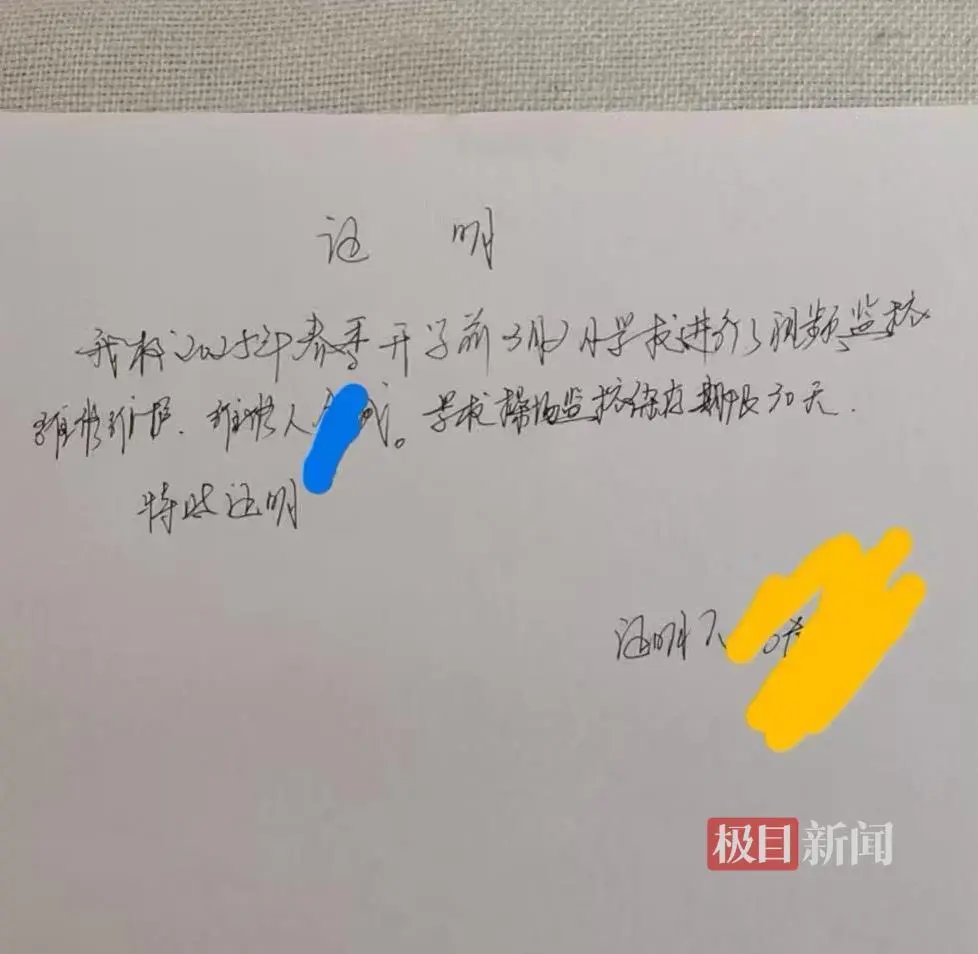 证明
我校2025年春季开学前3月2日学校进行了视频监控
维修维护。维修人 成。学校操场监控保存期限30天.
特此证明
证明人
极目新闻